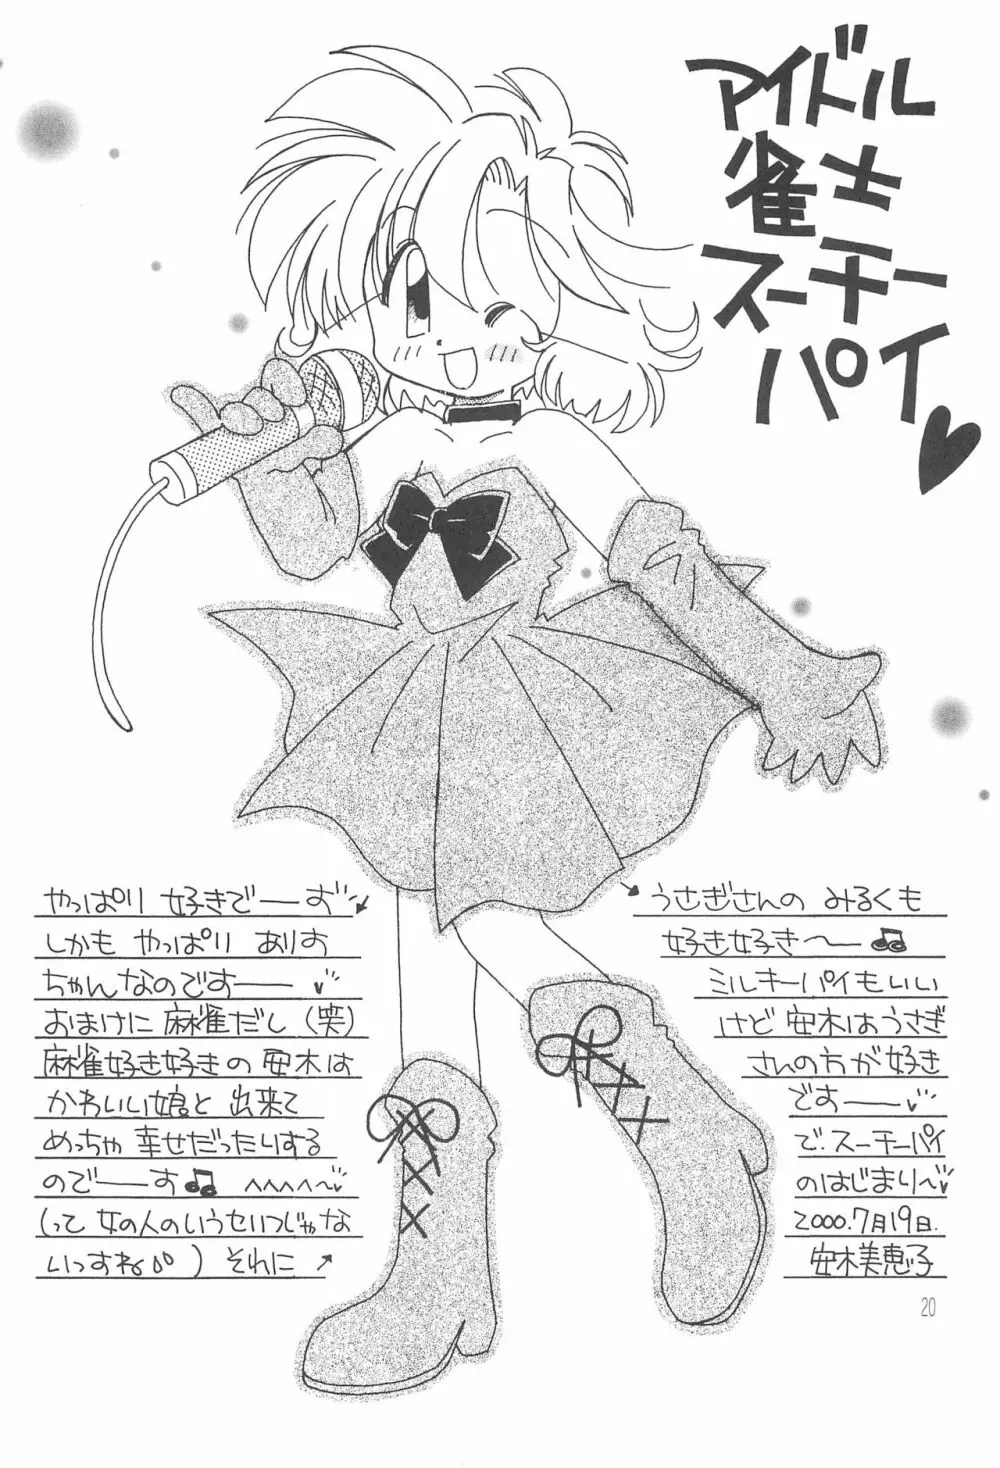 アイドル
雀士
スーチー
パイ♥
やっぱり 好きでーーす
しかも やっぱり ありす
ちゃんなのですーー
おまけに 麻雀だし(笑)
麻雀好き好きの 安木は
かわいい娘と 出来て
めっちゃ 幸せだったりする
のでーーす♫ へへへへ〜
(って 女の人のいうセいつじゃな
いっすね ) それに →
うさぎさんの みるくも
好き好き〜ー♫
ミルキーパイもいい
けど 安木はうさぎ
さんの方が好き
ですーー
で.スーチーパイ
のはじまり〜
2000.7月19日.
安木美恵子
20